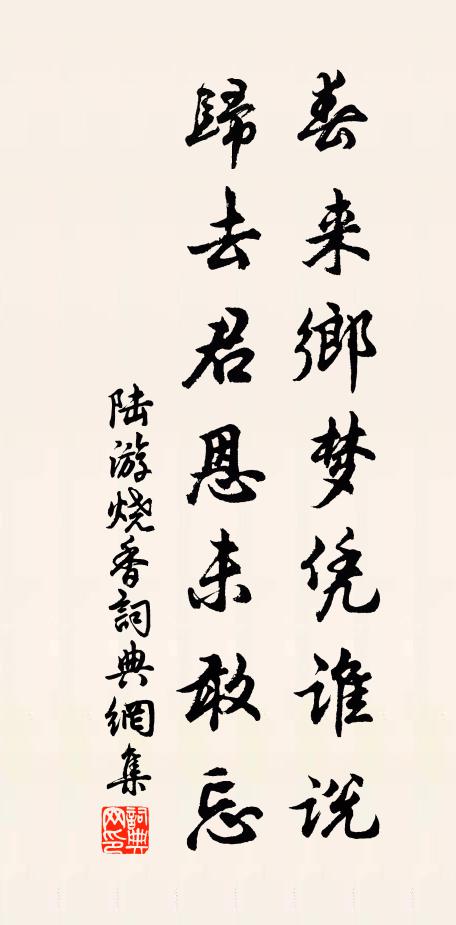 春来鄉梦凭谁说
歸去君恩未敢忘
陆游烧香詞典網集
詞典网印